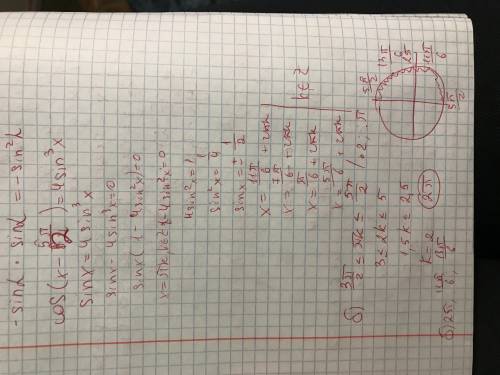 -sinα · sinα = -sin²α
cos(x - 5π/2) = 4sin³x
sinx = 4sin³x
sinx - 4sin³x = 0
sinx(1 - 4sin²x) = 0
x = πk, k∈Z 1 - 4sin²x = 0
4sin²x = 1
sin²x = 1/4
sinx = ± 1/2
x = 11π/6 + 2πk
x = 7π/6 + 2πk
x = π/6 + 2πk
x = 5π/6 + 2πk
k∈Z
б) 3π/2 ≤ πk ≤ 5π/2 / · 2 : π
3 ≤ 2k ≤ 5
1,5k ≤ 2,5
k = 2
2π
б) 2π, 11π/6, 13π/6
5π/2
13π/6
2π
11π/6
3π/2